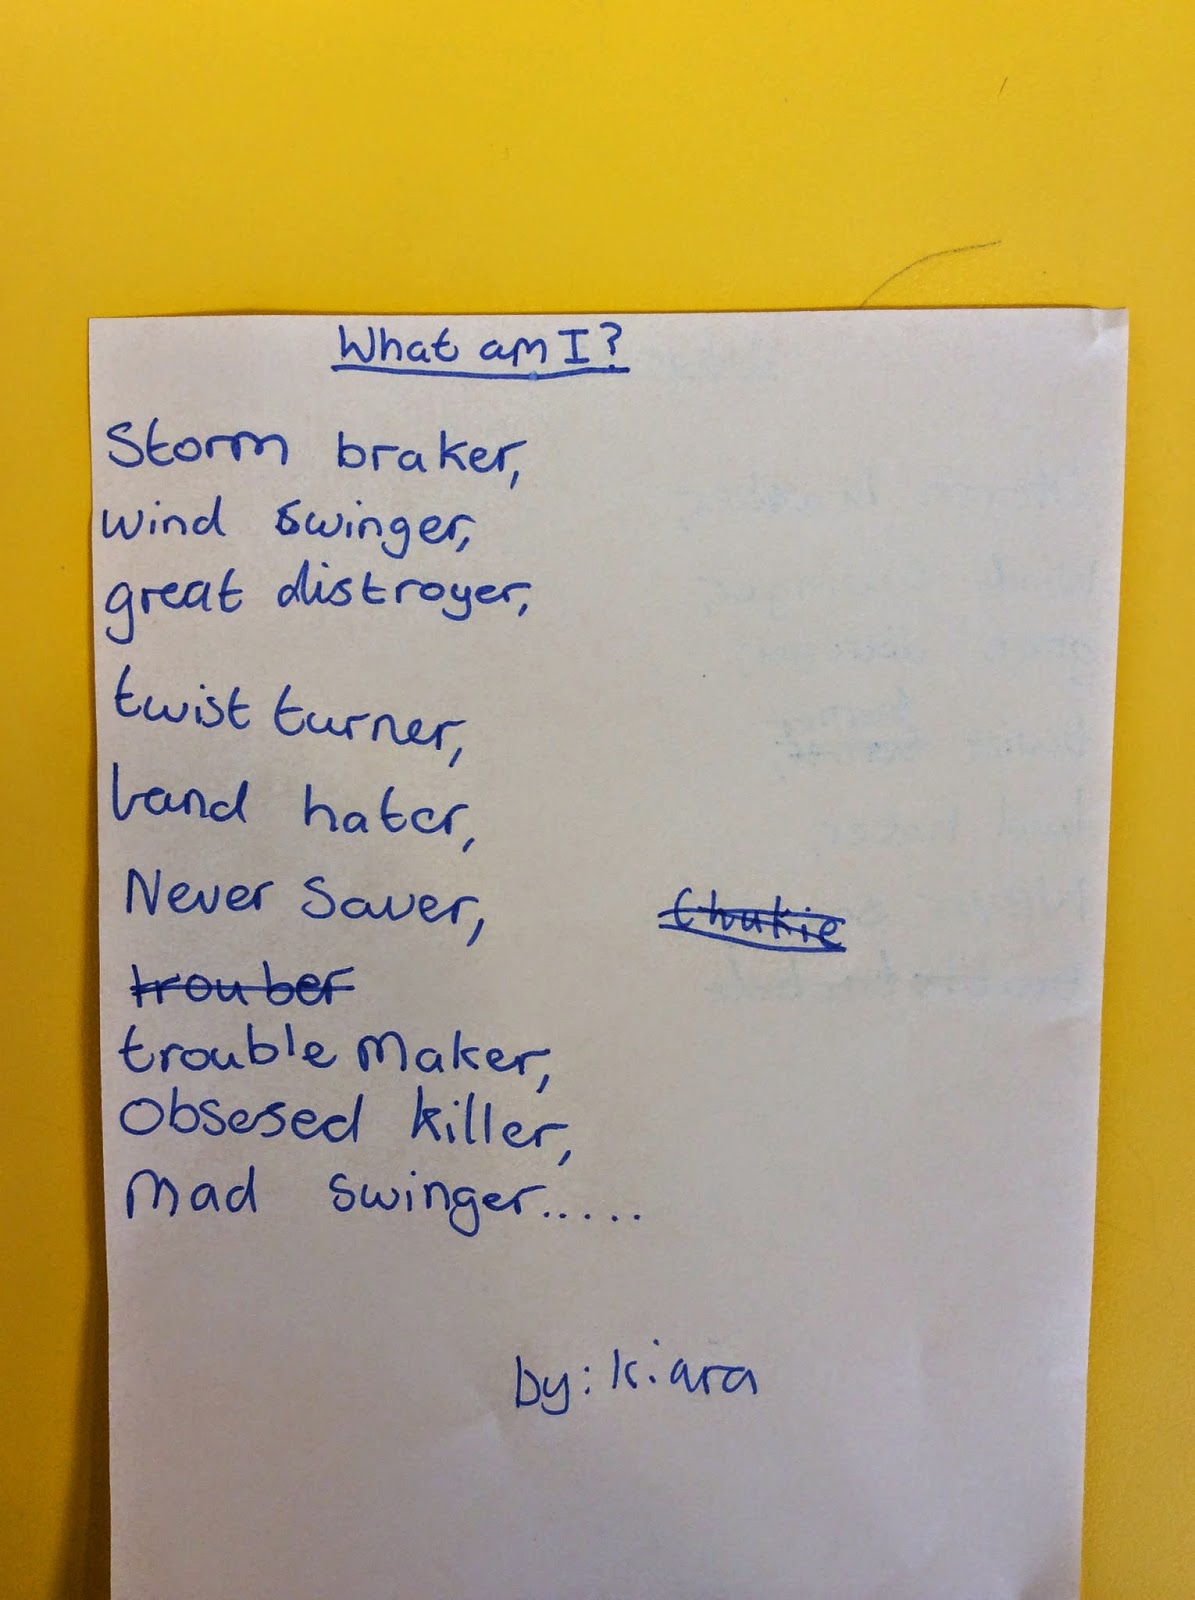 What am I?
Storm braker,
wind swinger,
great distroyer,
twist turner,
Land hater,
Never Saver,
Chukie
trouber
trouble Maker,
Obsesed killer,
Mad swinger.....
by: kiara